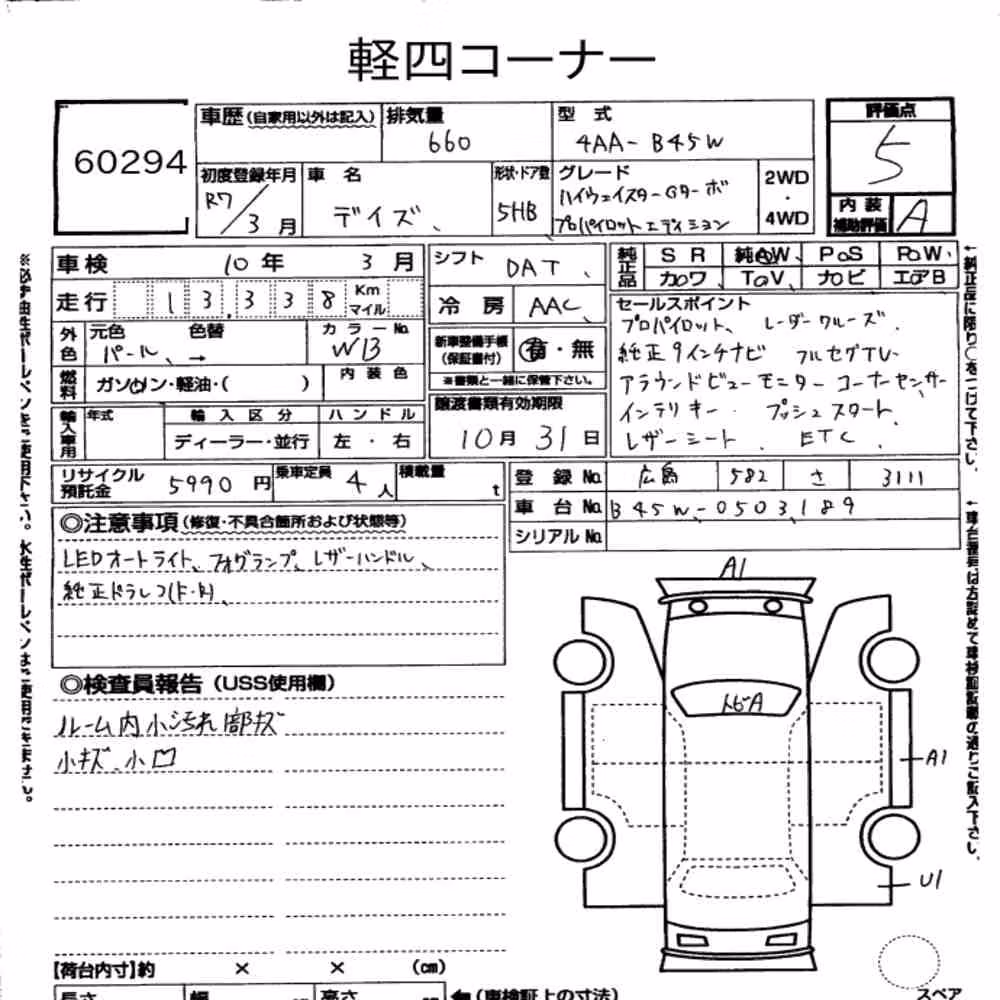 軽四コーナー
60294
車歴(自家用以外は記入) 排気量 型式 評価点
660 4AA-B45W 5
初度登録年月 車名 形状・ドア数 グレード 2WD・4WD 内装補助評価
R7/3月 デイズ 5HB ハイウェイスターGターボ A
プロパイロットエディション
車検 10年 3月 シフト DAT 純正品 SR 純AW PS PW
カワ TV ナビ エアB
走行 13338 Km マイル 冷房 AAC
セールスポイント
外色 元色 色替 カラーNo.
パール → W13
新車整備手帳(保証書付) 有・無
※書類と一緒に保管下さい。
プロパイロット、レーダークルーズ
純正9インチナビ フルセグTV
アラウンドビューモニター コーナーセンサー
インテリキー プッシュスタート
レザーシート、ETC
燃料 ガソリン・軽油・( ) 内装色
譲渡書類有効期限
10月31日
輸入車用 年式 輸入区分 ハンドル
ディーラー・並行 左・右
リサイクル預託金 5990円 乗車定員 4人 積載量 t
登録No. 広島 582 さ 3111
車台No. B45W-0503189
シリアルNo.
◎注意事項(修復・不具合箇所および状態等)
LEDオートライト、フォグランプ、レザーハンドル、
純正ドラレコ(F・R)、
◎検査員報告(USS使用欄)
ルーム内小汚れ部キズ
小キズ、小凹
A1
トビA
A1
U1
【荷台内寸】約 × × (cm)
長さ 幅 高さ (車検証上の寸法)
スペア
※必ず油性ボールペンをご使用下さい。水性ボールペンはご使用できません。
↑純正品に限り○をつけて下さい。
↑車台番号は左詰めで車検証記載の通りご記入下さい。